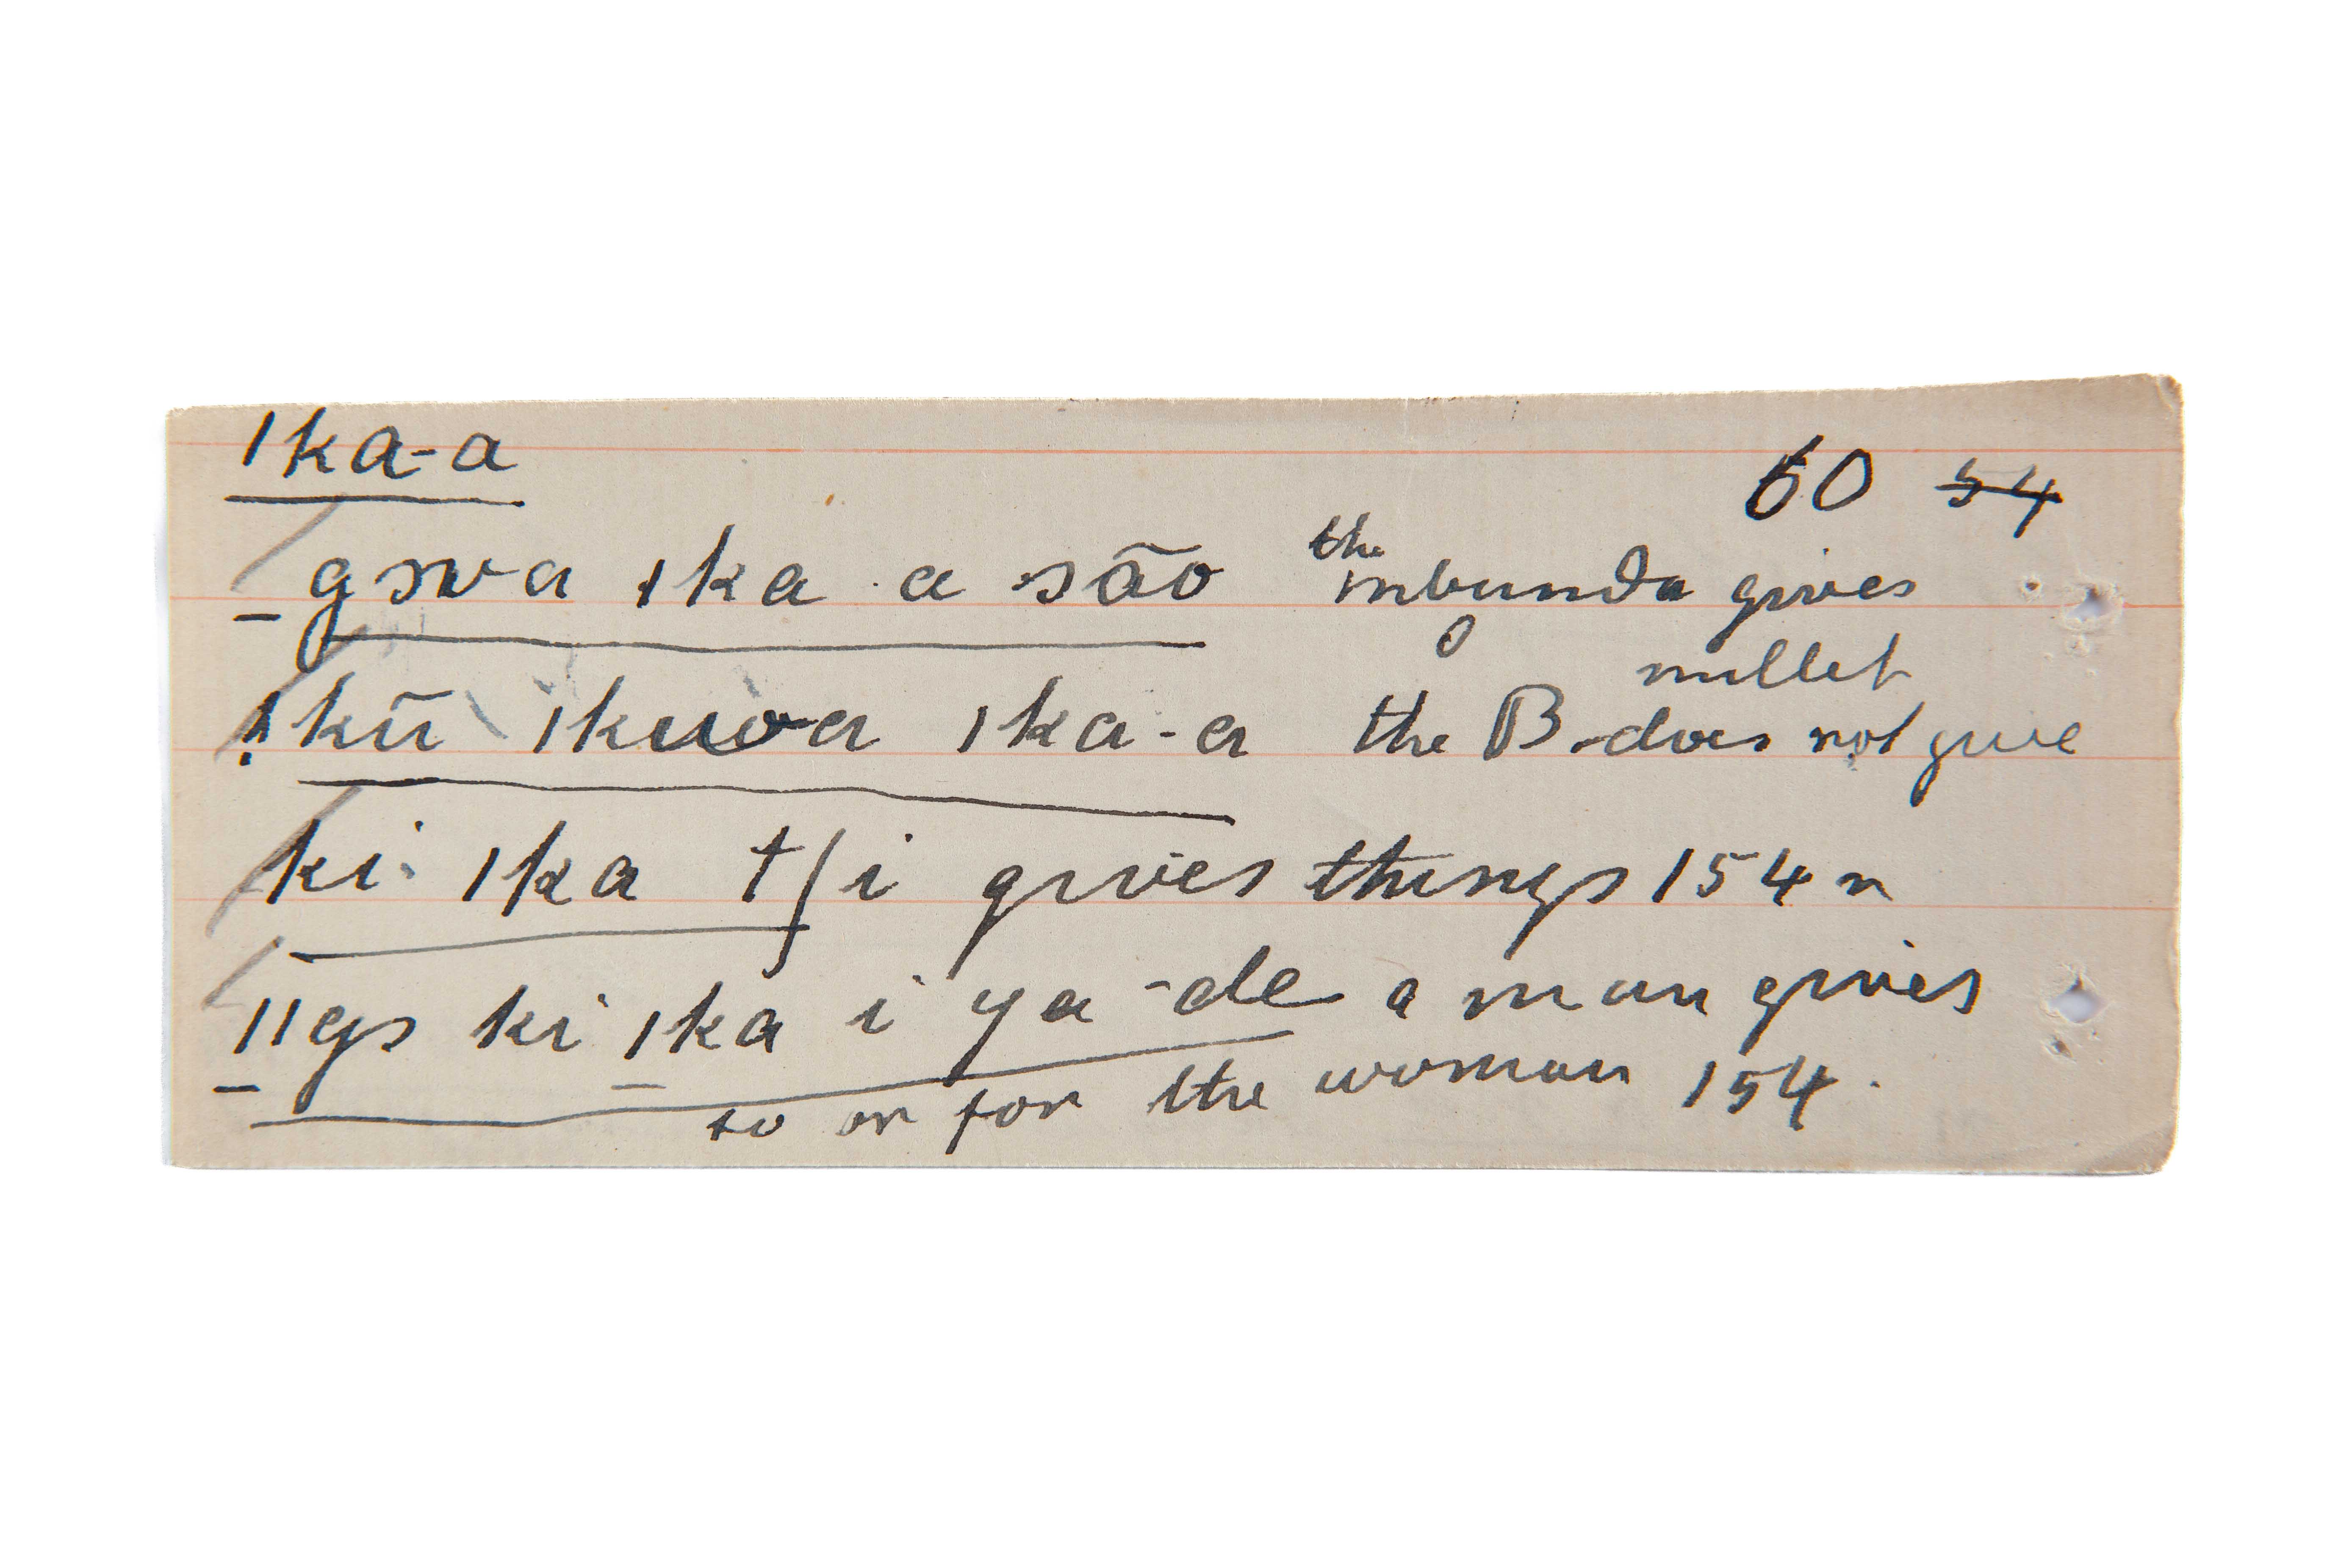 ǀka-a
60 54
gɔwa ǀka a sāo the mbunda gives
millet
!kū ǀkuwa ǀka-a the B. does not give
ki ǀka tʃi gives things 154 n
ǁgɔ ki ǀka i ya-de a man gives
to or for the woman 154.